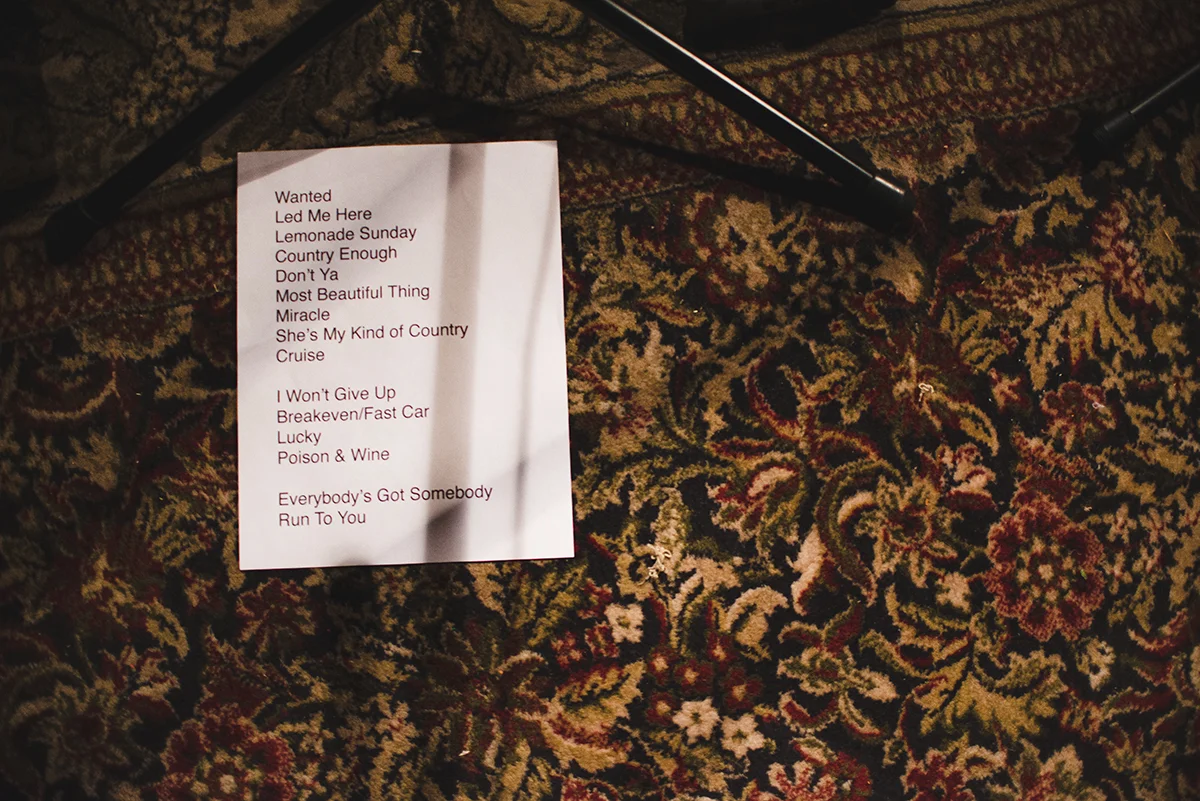 Wanted
Led Me Here
Lemonade Sunday
Country Enough
Don't Ya
Most Beautiful Thing
Miracle
She's My Kind of Country
Cruise
I Won't Give Up
Breakeven/Fast Car
Lucky
Poison & Wine
Everybody's Got Somebody
Run To You